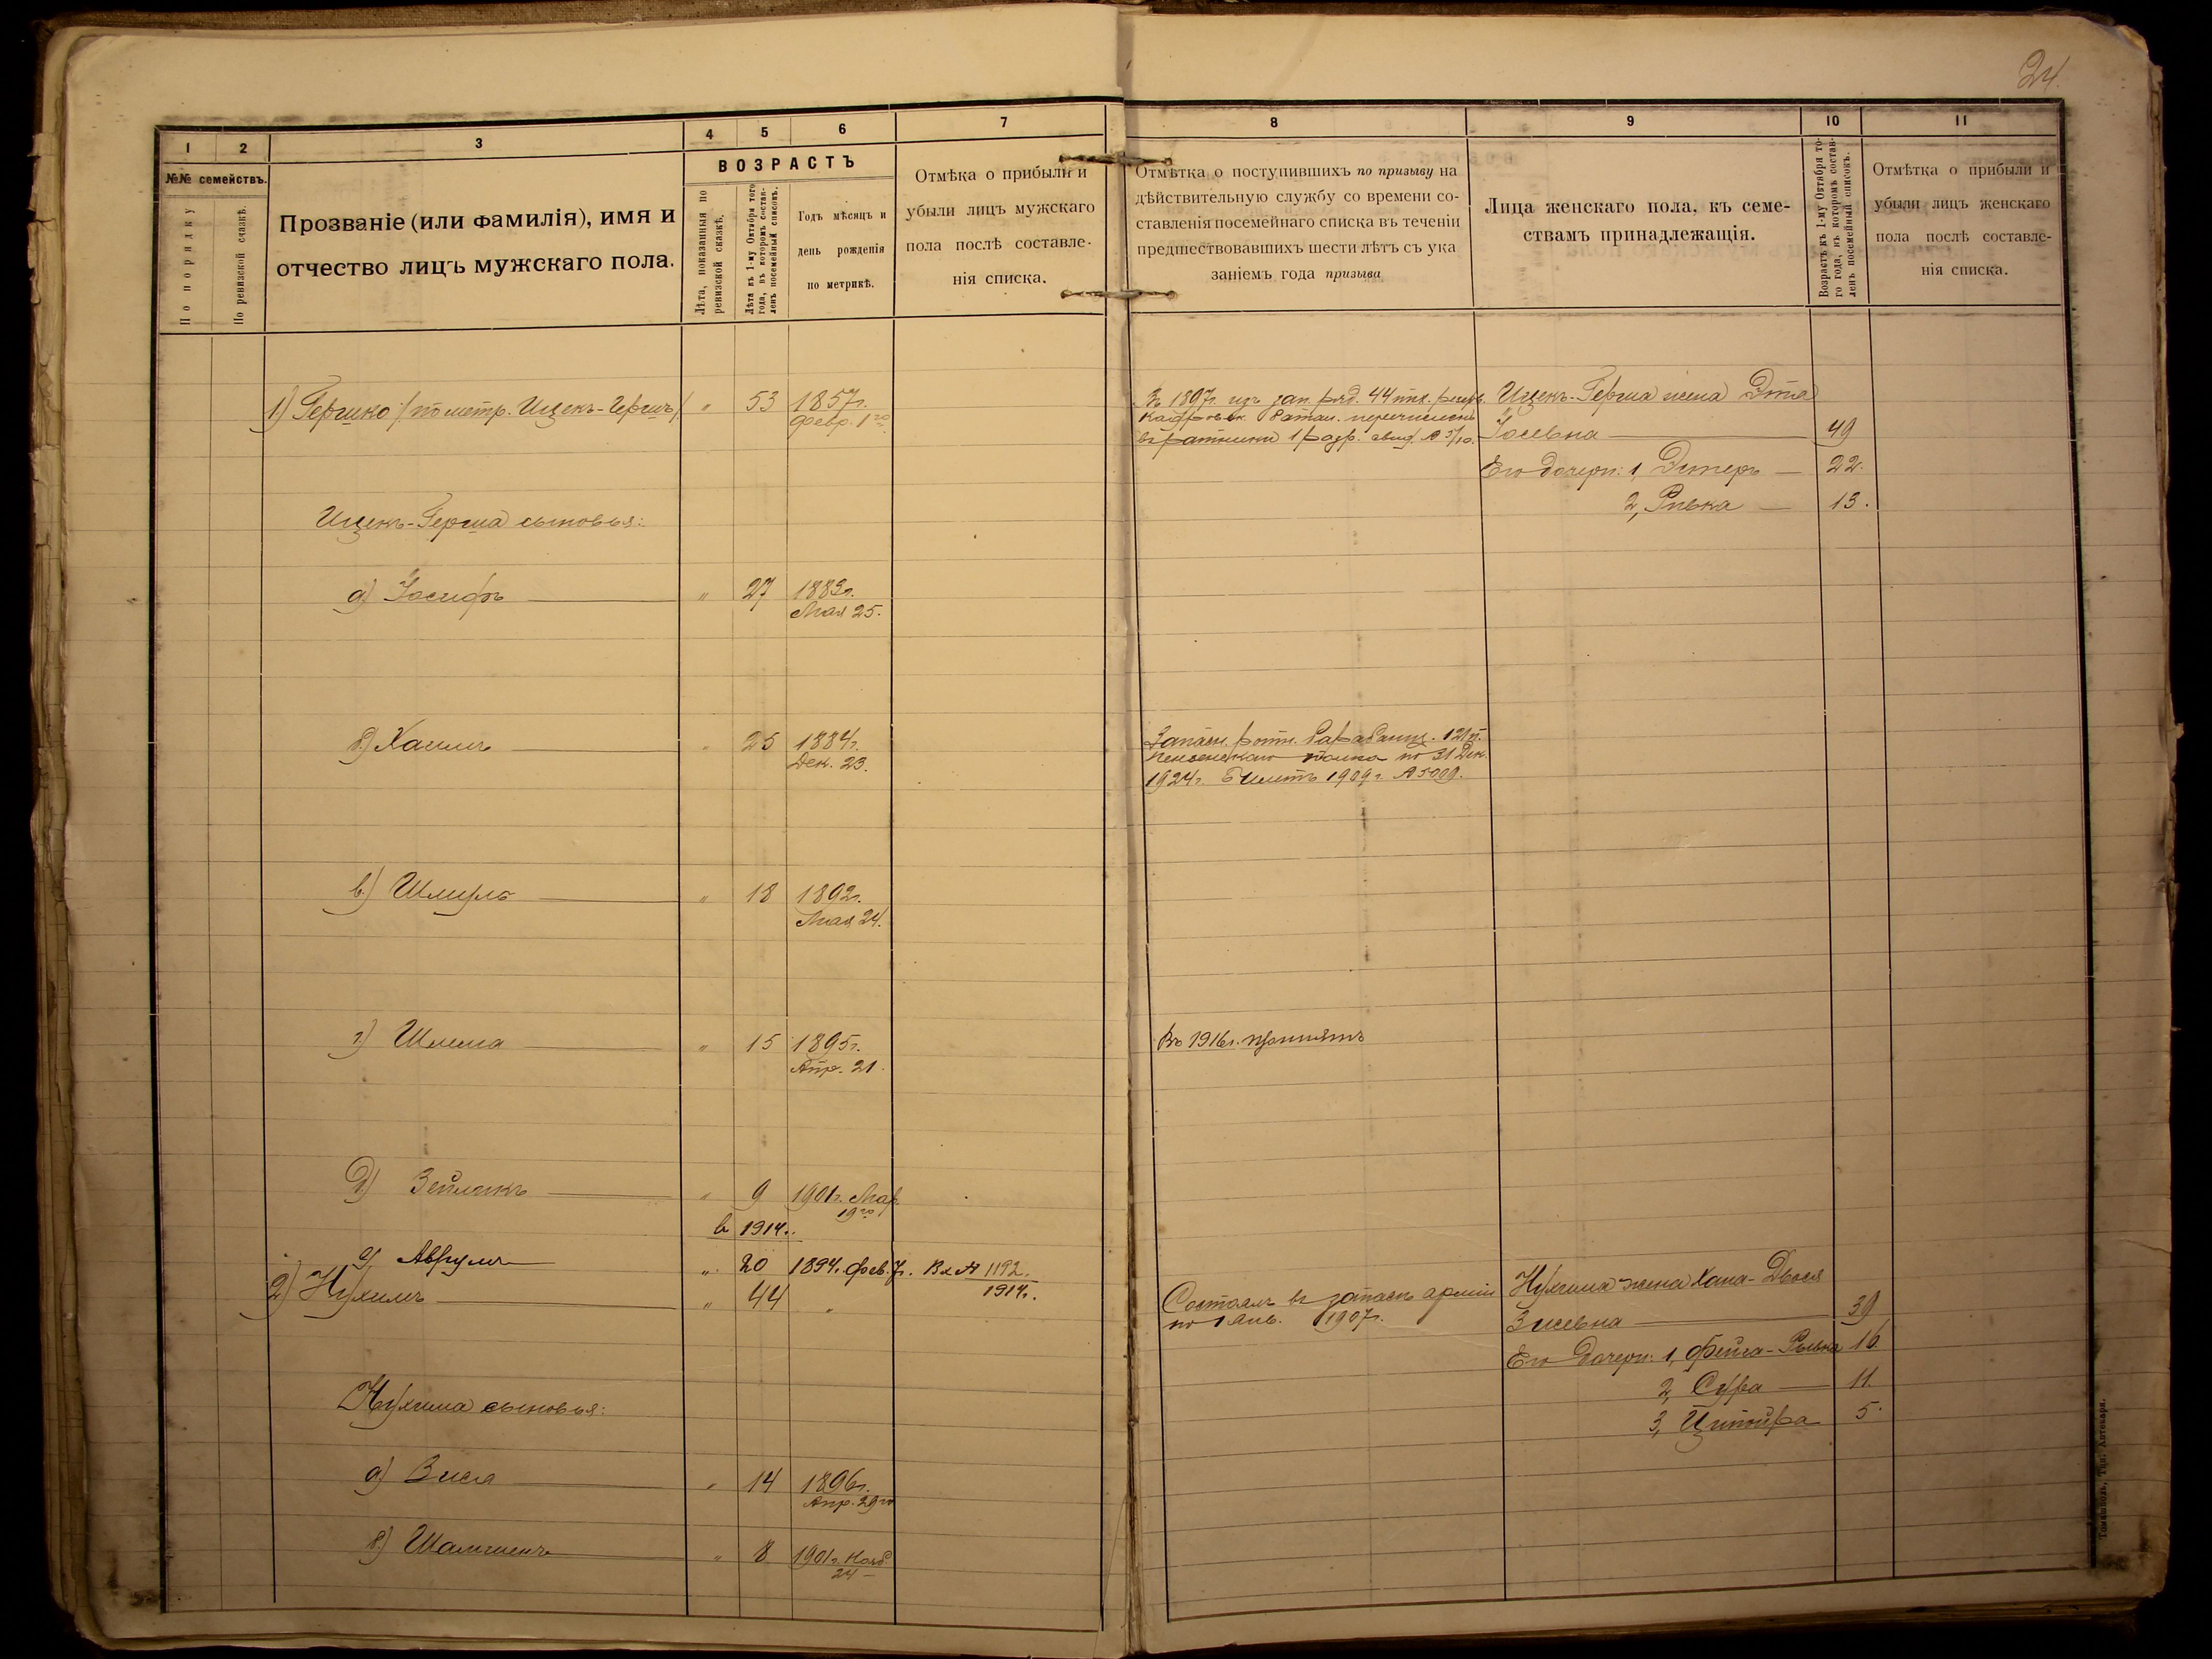 24.
1
2
3
4
5
6
7
№№ семействъ.
По порядку
По ревизской сказкѣ.
Прозваніе (или фамилія), имя и
отчество лицъ мужскаго пола.
ВОЗРАСТЪ
Лѣта, показанныя по
ревизской сказкѣ.
Лѣта къ 1-му Октября того
года, въ которомъ состав-
ленъ посемейный списокъ.
Годъ мѣсяцъ и
день рожденія
по метрикѣ.
Отмѣка о прибыли и
убыли лицъ мужскаго
пола послѣ составле-
нія списка.
1) Гершко /по метр. Ицекъ-Гершъ/ " 53 1857г.
Февр. 1го
Ицекъ-Герша сыновья:
а) Іосифъ " 27 1883г.
Мая 25.
б) Хаимъ " 25 1884г.
Дек. 23.
в) Шмуль " 18 1892г.
Мая 24.
г) Шлема " 15 1895г.
Апр. 21.
д) Зейликъ " 9 1901г. Мар.
19го
в 1914г.
е) Аврумъ " 20 1894г. фев. 7г. Вх № 1192
1914г.
2) Нухимъ " 44 "
Нухима сыновья:
а) Зися " 14 1896г.
Апр. 29го
б) " 8 1901г. Нояб
24
8
9
10
11
Отмѣтка о поступившихъ по призыву на
дѣйствительную службу со времени со-
ставленія посемейнаго списка въ теченіи
предшествовавшихъ шести лѣтъ съ ука
заніемъ года призыва
Лица женскаго пола, къ семе-
ствамъ принадлежащія.
Возрастъ къ 1-му Октября то-
го года, въ которомъ состав-
ленъ посемейный списокъ.
Отмѣтка о прибыли и
убыли лицъ женскаго
пола послѣ составле-
нія списка.
Въ 1897г. изъ зап. ряд. 44 пѣх. резерв.
кадров. батал. перечисленъ
въ ратники 1 разр. свид. № 5/10.
Ицекъ-Герша жена Эта
Іосевна 49
Его дочери: 1, Эстеръ 22.
2, Ривка 13.
Запасн. ротн. барабанщ. 121 п.
Пензенскаго полка по 31 Дек.
1924г. Билетъ 1909г. № 5009.
Въ 1916г. принятъ
Состоялъ въ запасѣ арміи
по 1 Янв. 1907г.
Нухима жена Хана-Двося
Зисевна 39
Его дочери: 1, Фейга-Ривка 16.
2, Сура 11.
3, Ципойра 5.
Томашполь, Тип. Аптекаря.